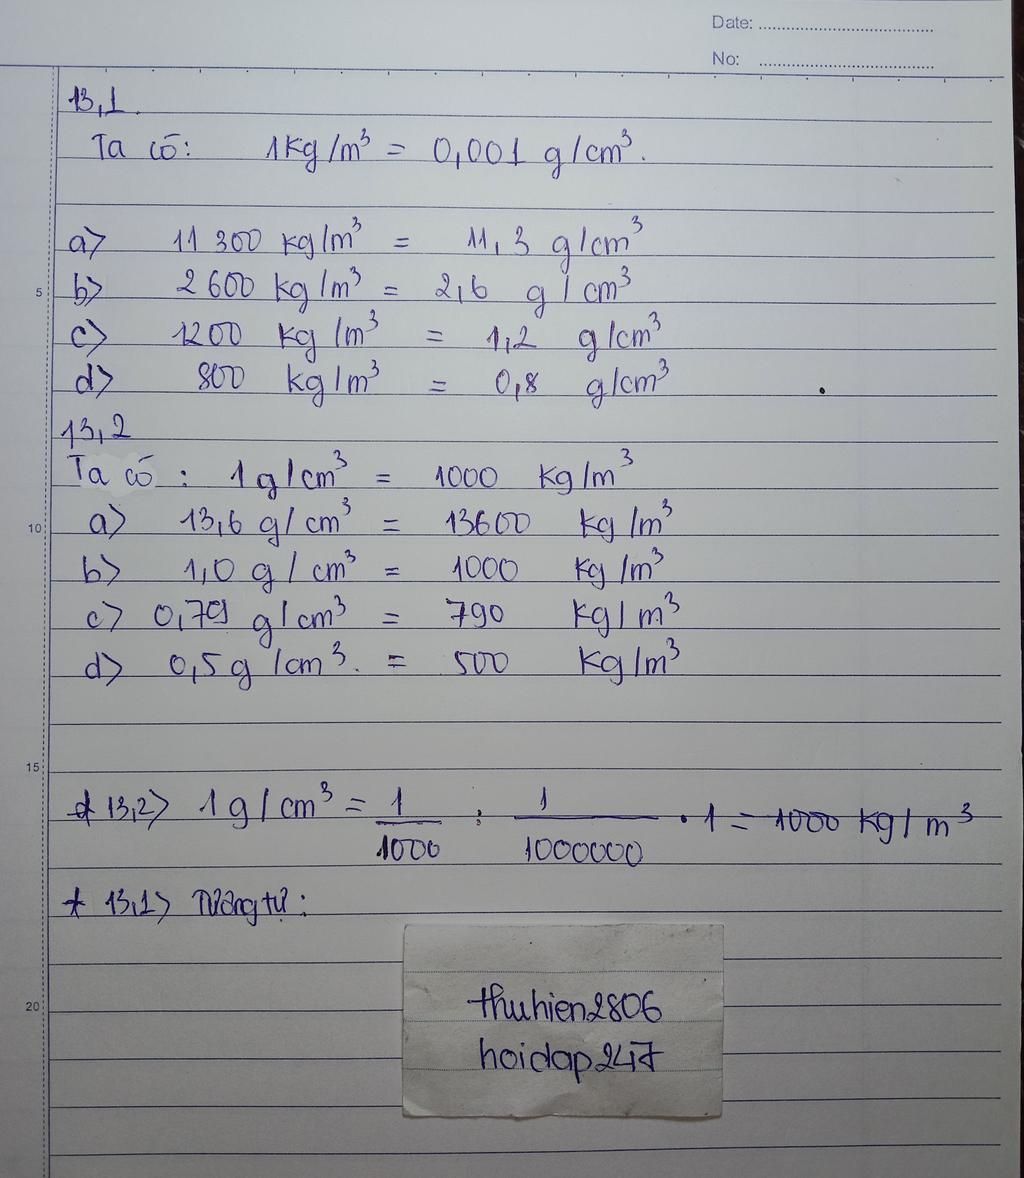 Date: ....................................
No: ....................................
13,1.
Ta có: 1Kg/m³ = 0,001 g/cm³.
a> 11 300 kg/m³ = 11,3 g/cm³
5
b> 2 600 kg/m³ = 2,6 g/cm³
c> 1200 kg/m³ = 1,2 g/cm³
d> 800 kg/m³ = 0,8 g/cm³
13,2
Ta có: 1 g/cm³ = 1000 Kg/m³
10
a> 13,6 g/cm³ = 13600 Kg/m³
b> 1,0 g/cm³ = 1000 Kg/m³
c> 0,79 g/cm³ = 790 Kg/m³
d> 0,5g/cm³. = 500 Kg/m³
15
* 13,2> 1g/cm³ = 1/1000 : 1/1000000 . 1 = 1000 Kg/m³
* 13,1> Tương tự:
20
thuhien2806
hoidap247